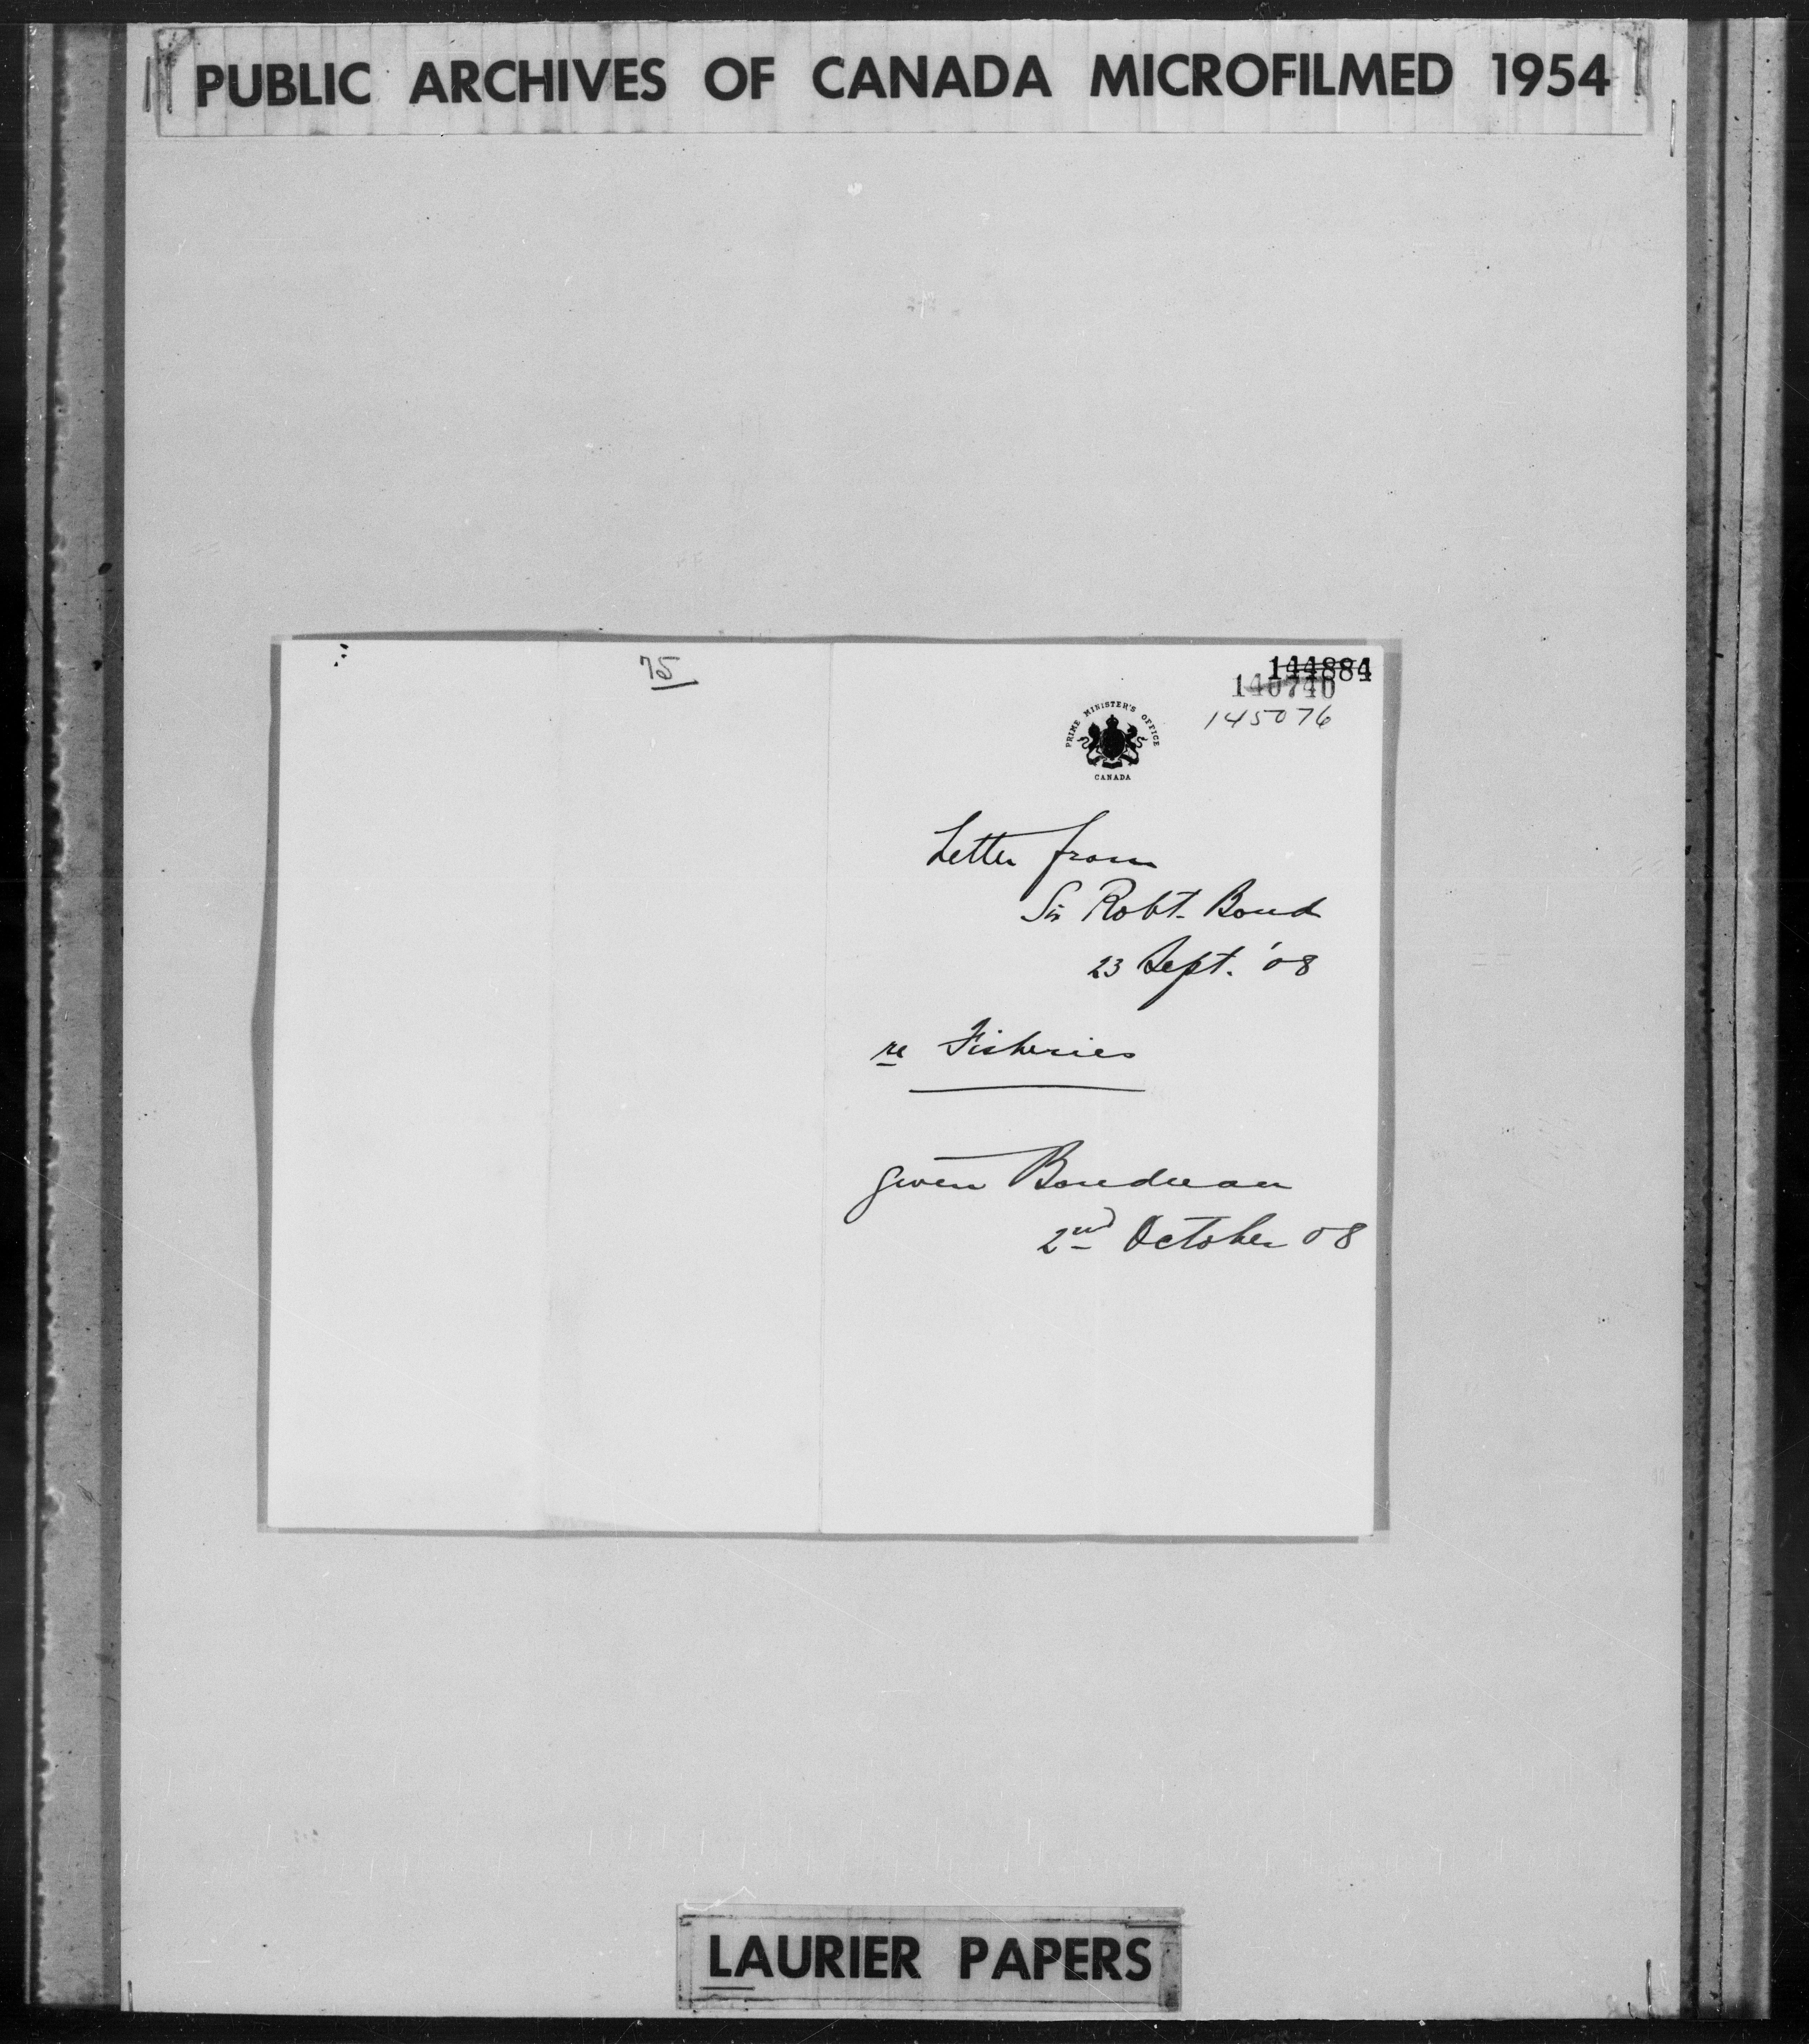 PUBLIC ARCHIVES OF CANADA MICROFILMED 1954
75
144884
140740
145076
PRIME MINISTER'S OFFICE
CANADA
Letter from
Sir Robt. Bond
23 Sept. '08
re Fisheries
given Boudreau
2nd October 08
LAURIER PAPERS